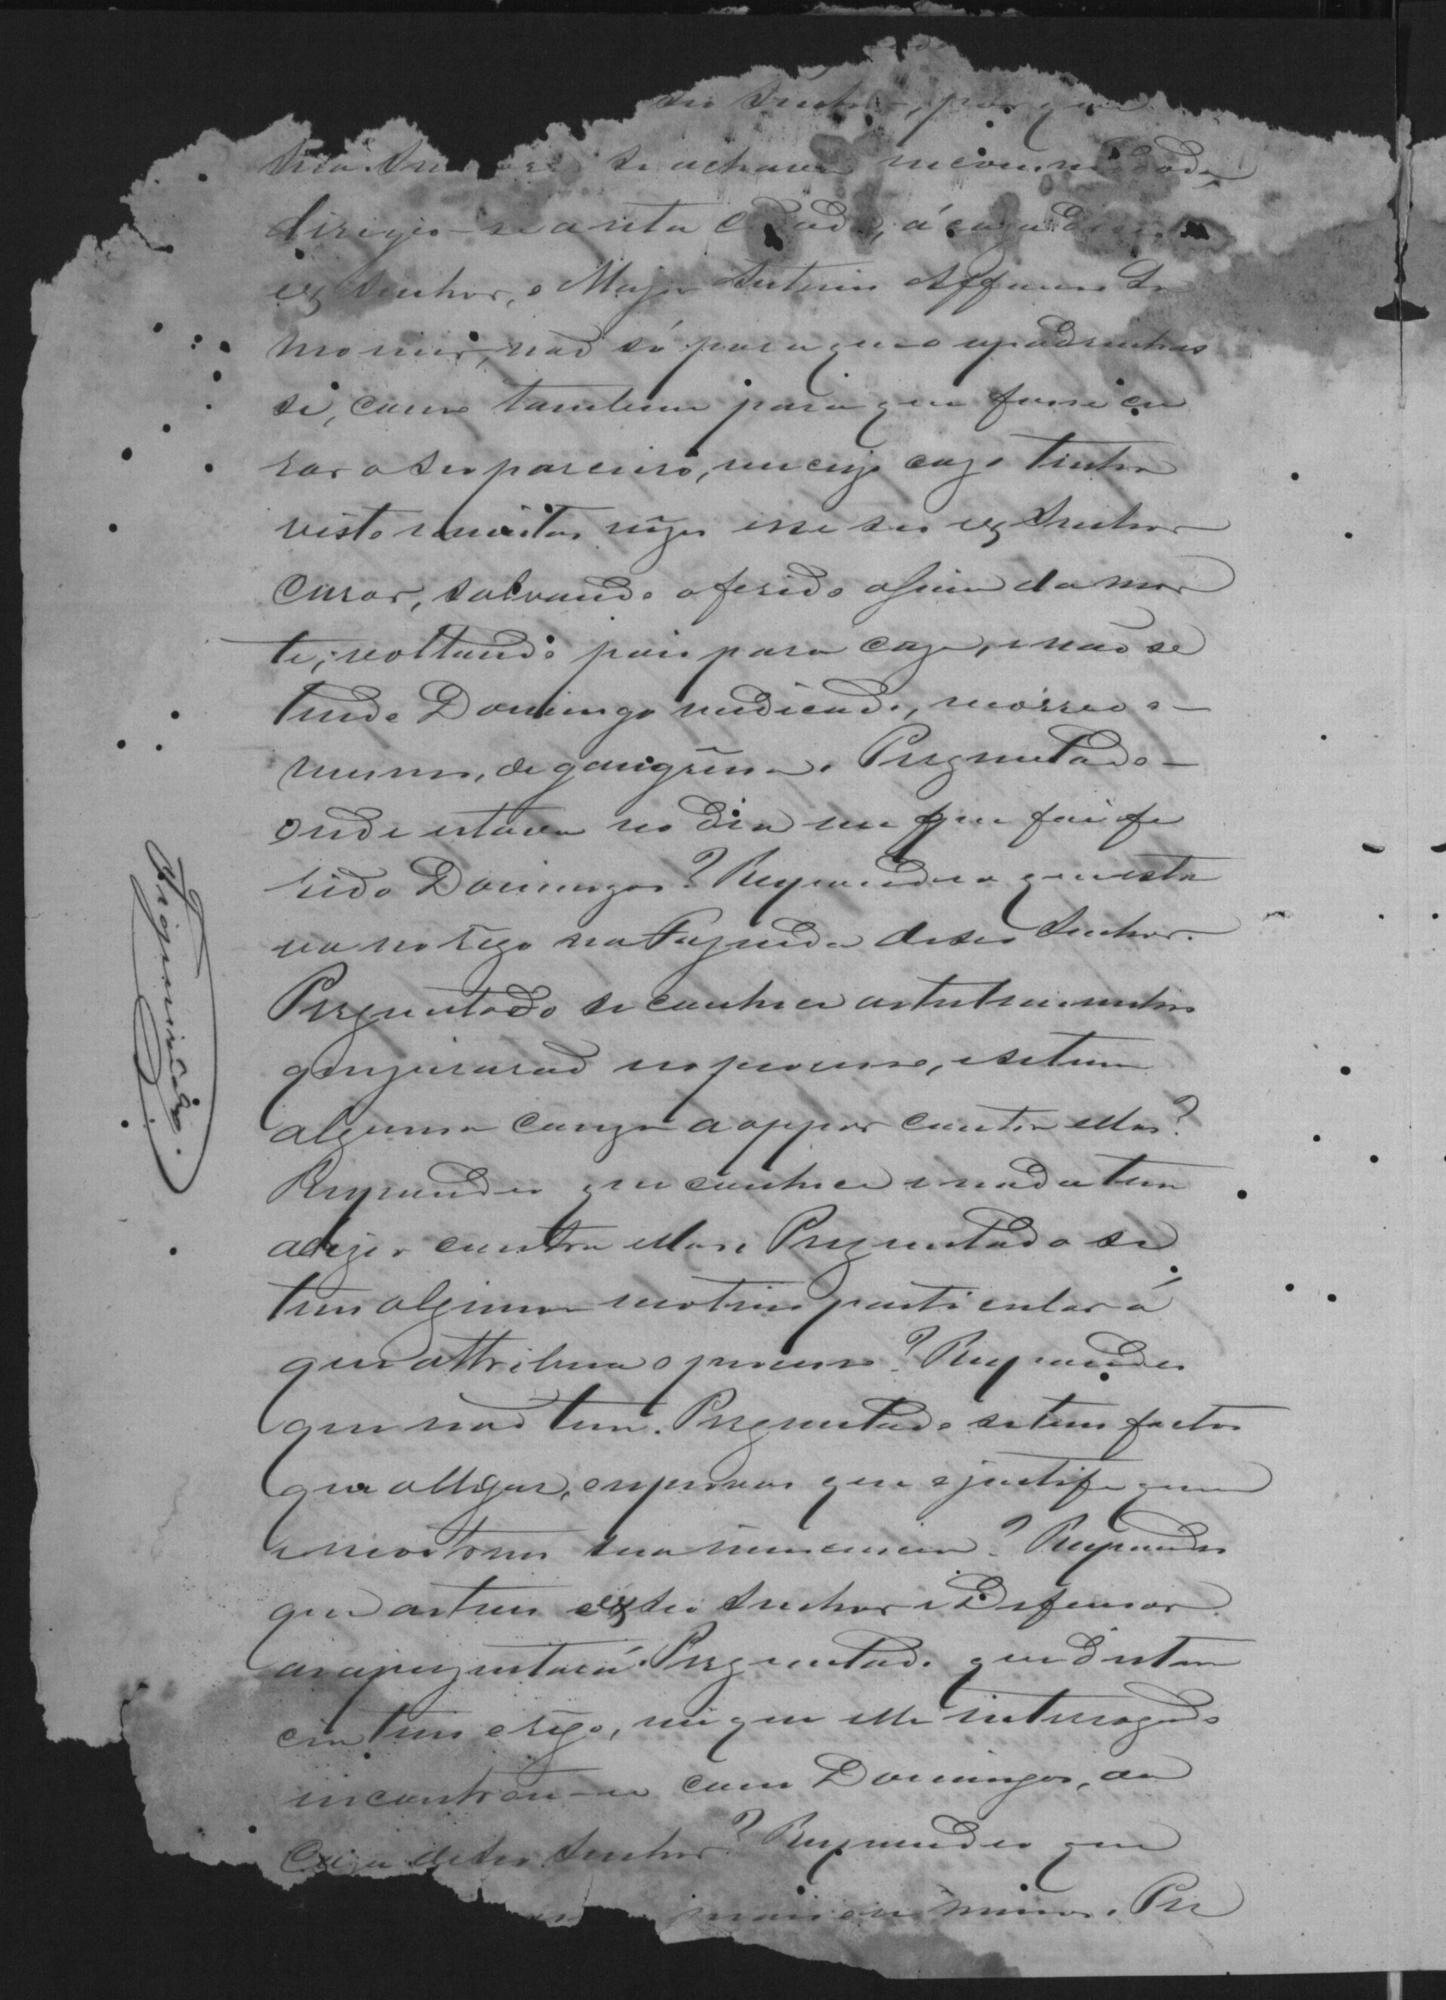 seo Senhor, porque
sua Senhora se achava incommodada,
dirigio-se a esta Cidade, á caza de seo
ex Senhor, o Major Antonio Affonso
não só para que o apadrinhas
se, como tambem para que fosse cu
rar o seo parceiro, em cujo cazo tinha
visto muitas vezes esse seo ex Senhor
curar, salvando o ferido assim da mor
te; voltando pois para caza, e não se
tendo Domingos medicado, morreo o
mesmo, de gangrena. Perguntado
onde estava no dia em que foi fe
rido Domingos? Respondeo que esta
va no rego na Fazenda de seo Senhor.
Perguntado se conhece as testemunhas
que jurarão no processo, e se tem
alguma couza a oppor contra ellas?
Respondeo que conhece e nada tem
a dizer contra ellas. Perguntado se
tem algum motivo particular á
que attribua o processo? Respondeo
que não tem. Perguntado se tem factos
que allegar, ou provas que o justifiquem
e mostrem sua innocencia? Respondeo
que as tem e seo Senhor e Defensor
as aprezentará. Perguntado que distan
cia tem o rego, em que elle interrogado
encontrou-se com Domingos, da
Caza de seo Senhor? Respondeo que
mais ou menos. Per